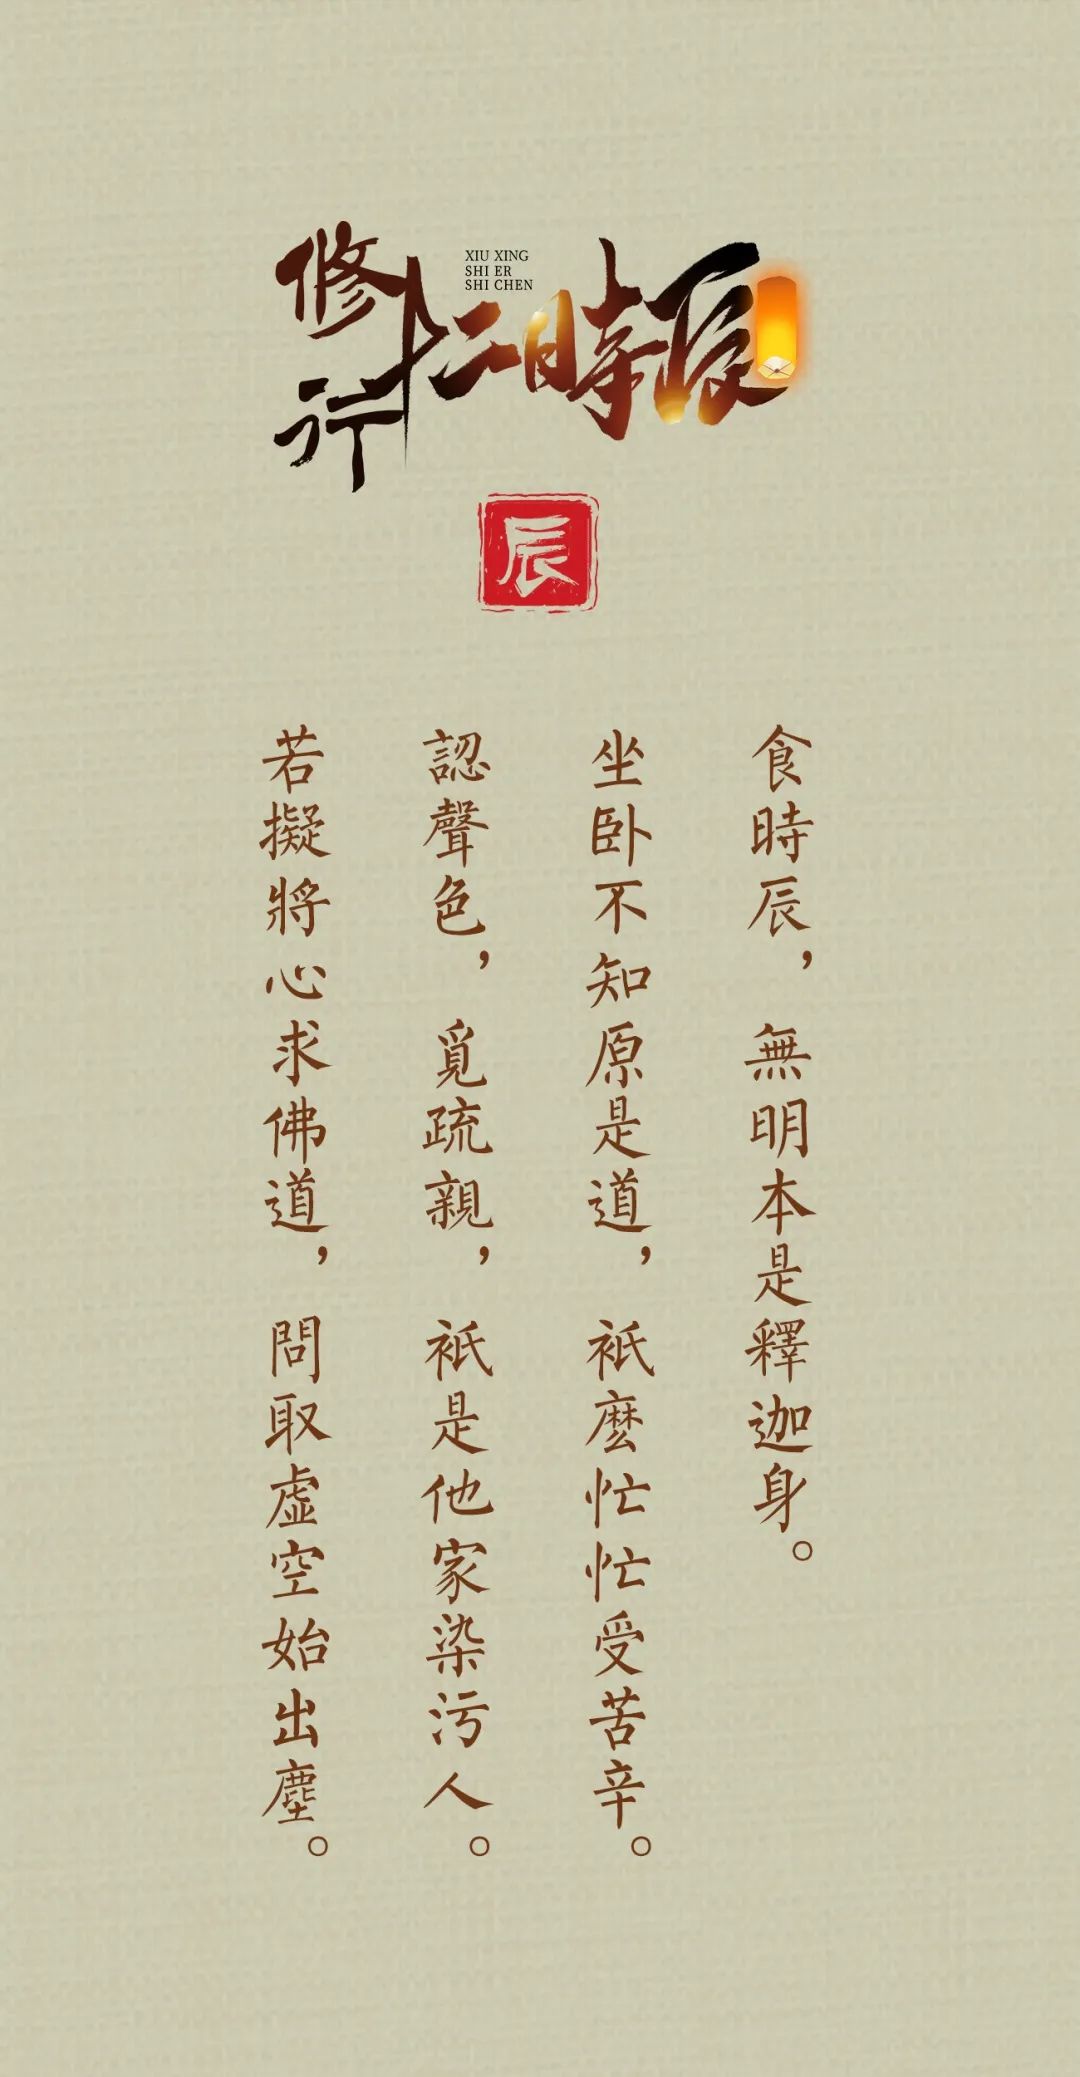 修行十二時辰
XIU XING
SHI ER
SHI CHEN
辰
食時辰，無明本是釋迦身。
坐卧不知原是道，祇麽忙忙受苦辛。
認聲色，覓疏親，祇是他家染污人。
若擬將心求佛道，問取虛空始出塵。